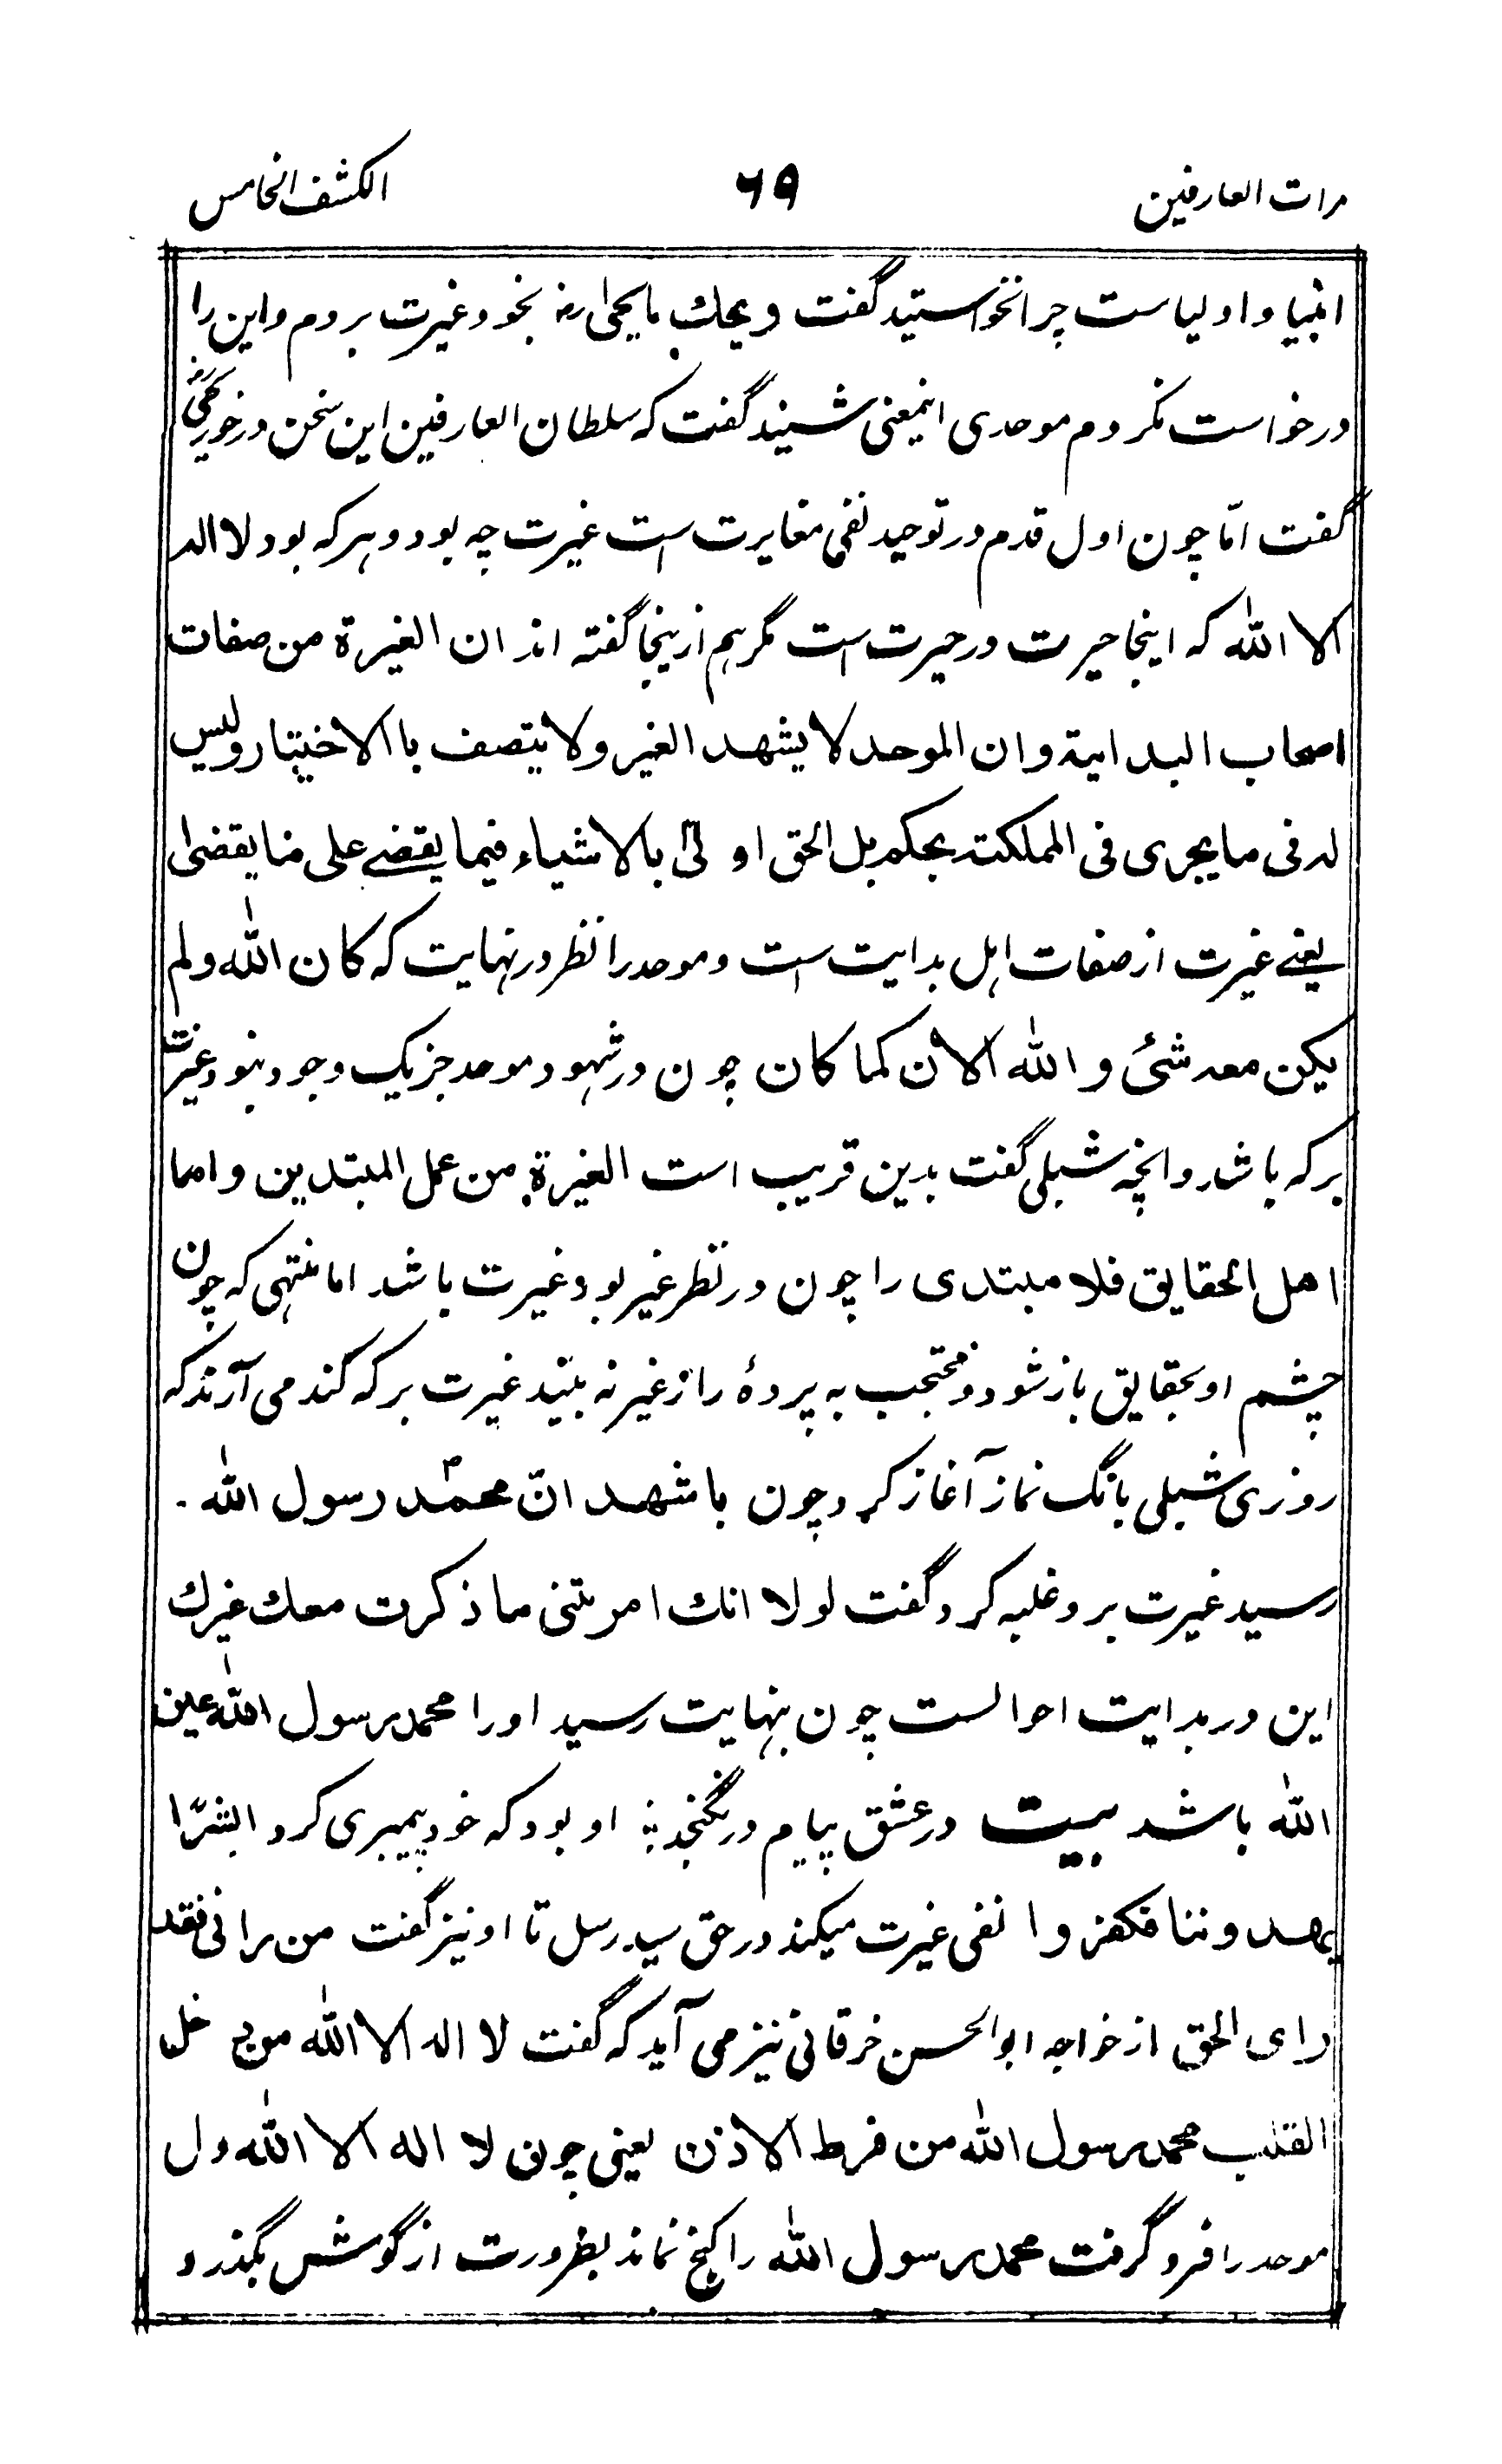 مرات العارفین ۶۹ الکشف الخامس
انبیا و اولیاست چرا نخواستید گفت ویحک یا یحیی رضه بخود غیرت بردم و این را
درخواست نکردم موحدی اینمعنی شنید گفت که سلطان العارفین این سخن درخور یحیی رضه
گفت امّا چون اول قدم در توحید نفی مغایرت است غیرت چه بود و بر که بود لا اله
الا الله که اینجا حیرت در حیرت است مگر هم ازینجا گفته اند ان الغیرة من صفات
اصحاب البدایة و ان الموحد لا یشهد الغیر و لا یتصف با الاختیار و لیس
له فی ما یجری فی المملکت بحکم بل الحق اولیٰ بالاشیاء فیما یقضے علی ما یقضیٰ
یعنے غیرت از صفات اہل بدایت است و موحد را نظر در نہایت کہ کان الله و لم
یکن معه شئ و الله الان کما کان چون در شہود موحد جز یک وجود نبود غیرت
بر کہ باشد و انچه شبلی گفت بدین قریب است الغیرة من عمل المبتدین و اما
اهل الحقایق فلا مبتدی را چون در نظر غیر بود غیرت باشد اما منتہی کہ چون
چشم او بحقایق باز شود و محتجب به پردهٔ راز غیر نه بیند غیرت بر کہ کند می آرند کہ
روزی شبلی بانگ نماز آغاز کرد چون باشهد انّ محمّدؐ رسول الله ۔
رسید غیرت برو غلبہ کرد گفت لولا انك امرتنی ما ذکرت معك غیرك
این در بدایت احوالست چون بنہایت رسید او را محمد رسول الله عین
الله باشد بیت در عشق پیام در نگنجد ؛ او بود کہ خود پیمبری کرد ابشرًا
یهدوننا فکفروا نفی غیرت میکند در حق سید رسل تا او نیز گفت من رانی فقد
رای الحق از خواجہ ابو الحسن خرقانی نیز می آید کہ گفت لا اله الا الله من داخل
القلب محمد رسول الله من قرط الاذن یعنی چون لا اله الا الله دل
موحد را فرو گرفت محمد رسول الله را گنج نماند بضرورت از گوشش بگذرد